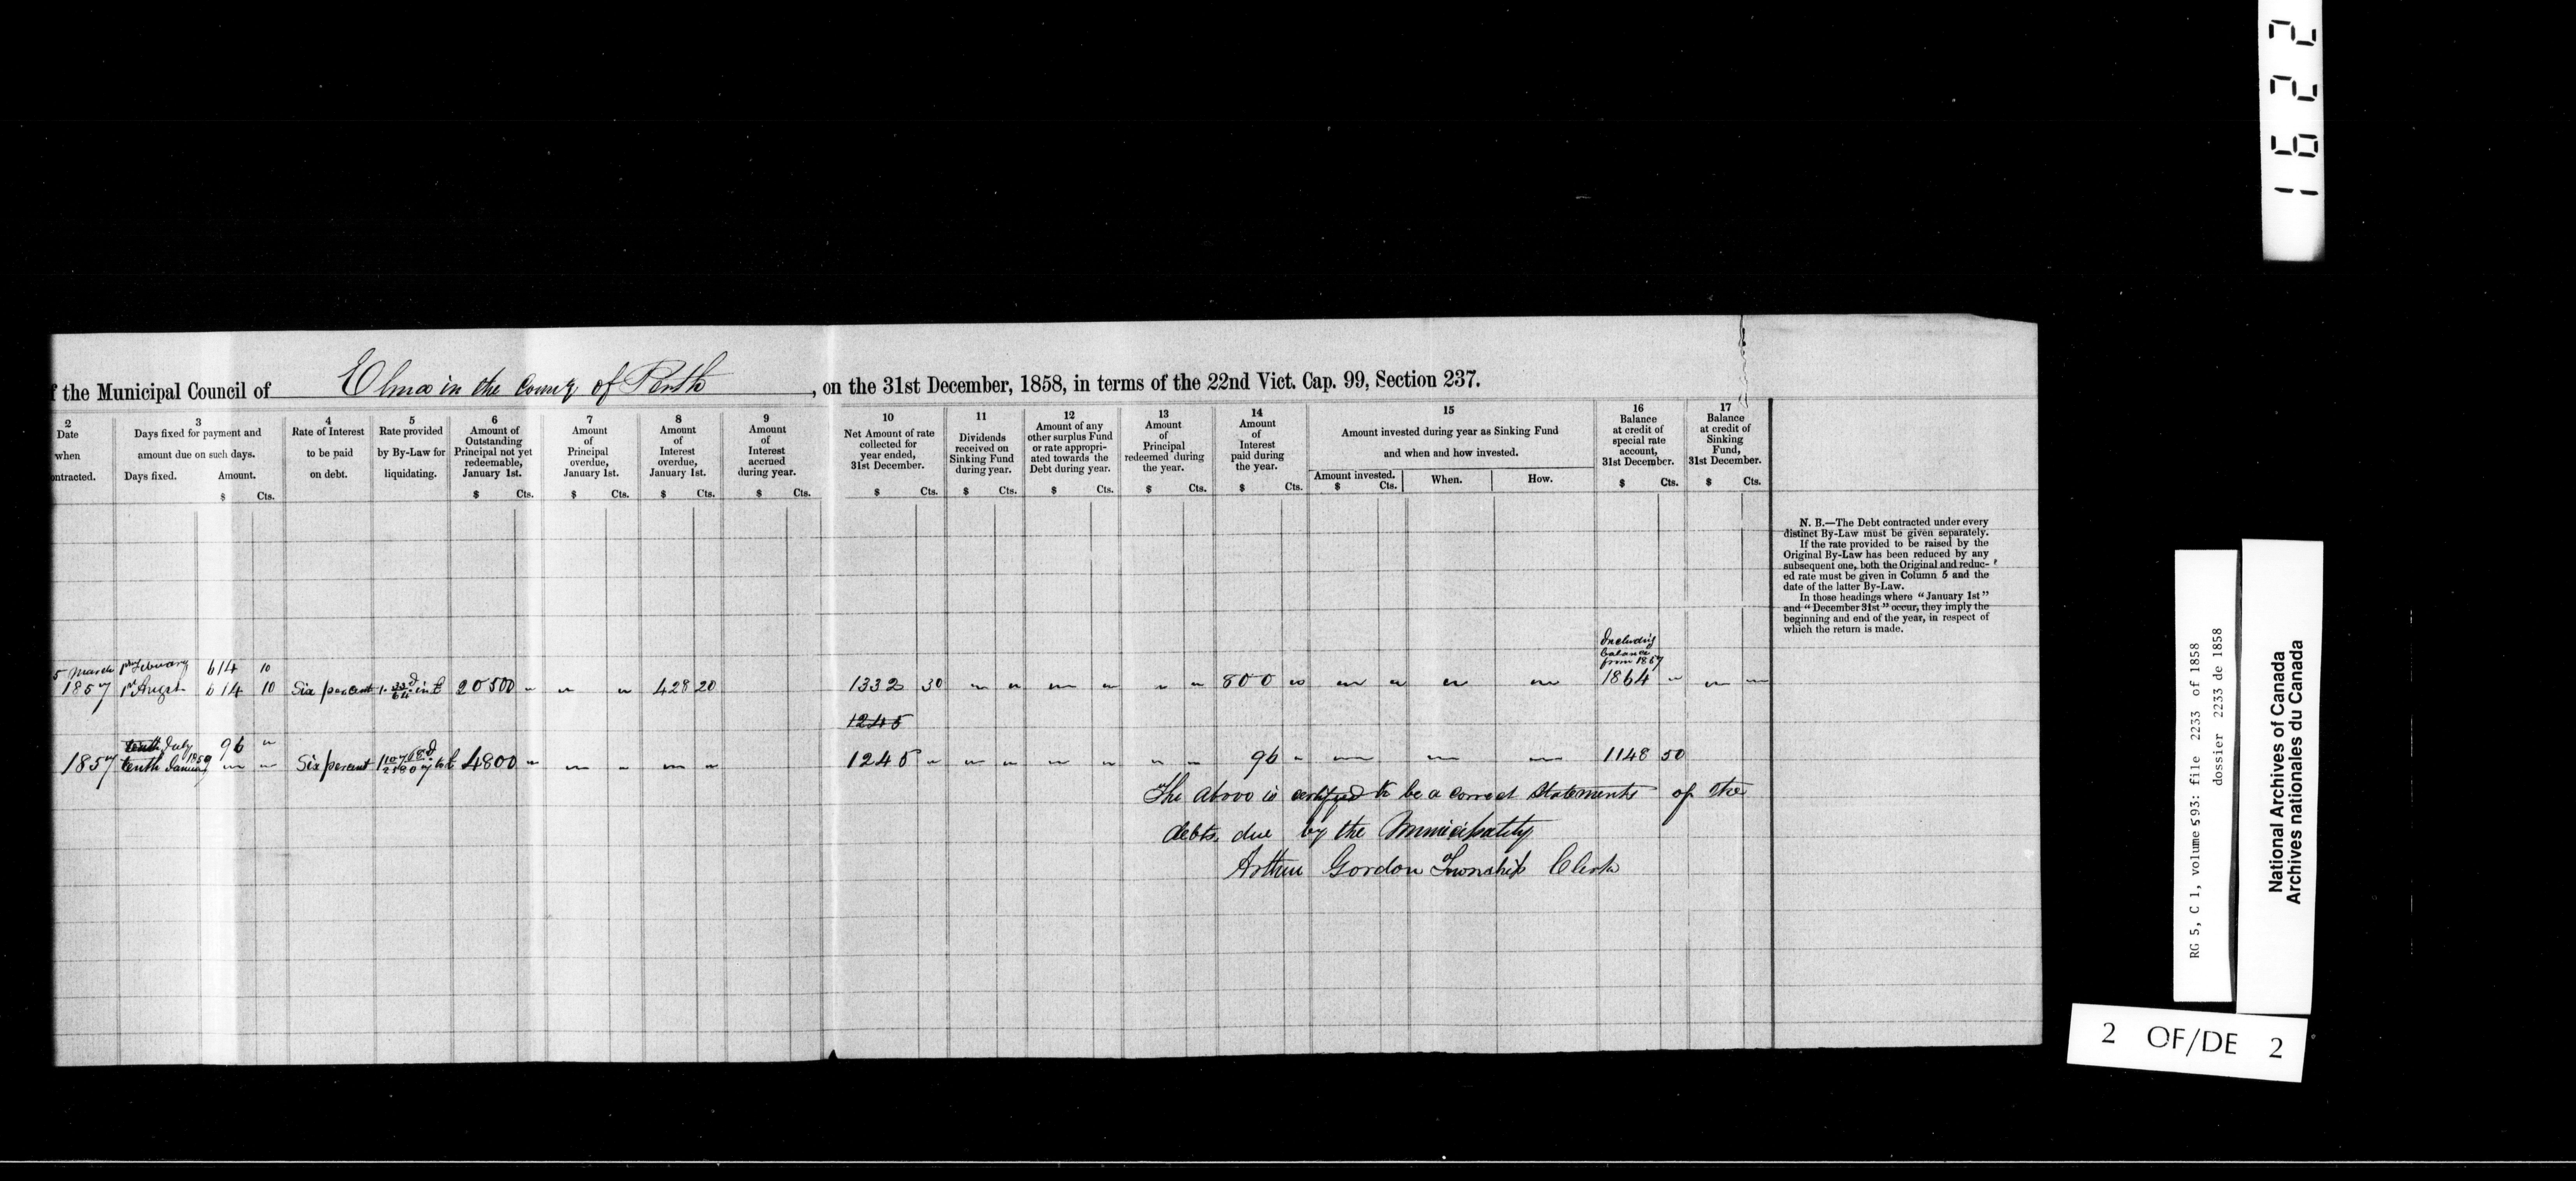 1622
f the Municipal Council of Elma in the County of Perth, on the 31st December, 1858, in terms of the 22nd Vict. Cap. 99, Section 237.
2
Date
when
ontracted.
3
Days fixed for payment and
amount due on such days.
Days fixed. Amount.
$ Cts.
4
Rate of Interest
to be paid
on debt.
5
Rate provided
by By-Law for
liquidating.
6
Amount of
Outstanding
Principal not yet
redeemable,
January 1st.
$ Cts.
7
Amount
of
Principal
overdue,
January 1st.
$ Cts.
8
Amount
of
Interest
overdue,
January 1st.
$ Cts.
9
Amount
of
Interest
accrued
during year.
$ Cts.
10
Net Amount of rate
collected for
year ended,
31st December.
$ Cts.
11
Dividends
received on
Sinking Fund
during year.
$ Cts.
12
Amount of any
other surplus Fund
or rate appropri-
ated towards the
Debt during year.
$ Cts.
13
Amount
of
Principal
redeemed during
the year.
$ Cts.
14
Amount
of
Interest
paid during
the year.
$ Cts.
15
Amount invested during year as Sinking Fund
and when and how invested.
Amount invested. When. How.
$ Cts.
16
Balance
at credit of
special rate
account,
31st December.
$ Cts.
17
Balance
at credit of
Sinking
Fund,
31st December.
$ Cts.
N. B.—The Debt contracted under every
distinct By-Law must be given separately.
If the rate provided to be raised by the
Original By-Law has been reduced by any
subsequent one, both the Original and reduc-
ed rate must be given in Column 5 and the
date of the latter By-Law.
In those headings where "January 1st"
and "December 31st" occur, they imply the
beginning and end of the year, in respect of
which the return is made.
Including
balance
from 1857
5 March 1st February 614 10
1857 1st August 614 10 Six percent 20500 428 20 1332 30 800 00 1864
1245
tenth July 96
1857 tenth January 1859 Six percent 4800 1245 96 1148 50
The above is certified to be a correct Statements of the
debts due by the Municipality
Arthur Gordon Township Clerk
RG 5, C 1, volume 593: file 2233 of 1858
dossier 2233 de 1858
National Archives of Canada
Archives nationales du Canada
2 OF/DE 2